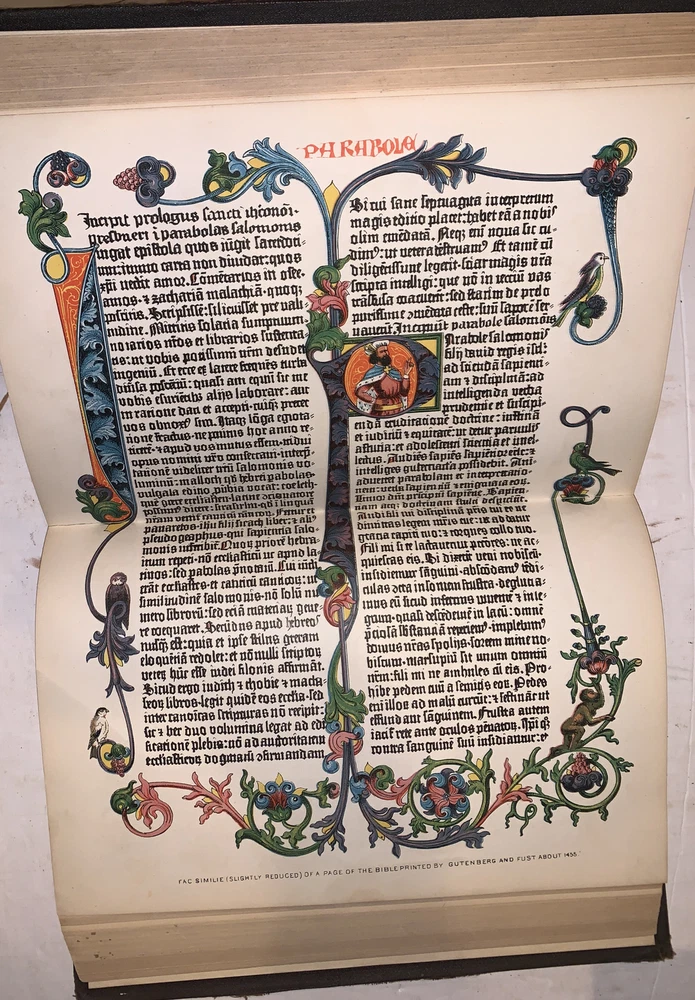 PARABOLE
Incipit prologus sancti iheronimi
presbiteri i parabolas salomonis
iungat epistola quos iūgit sacerdoti-
um: immo carta non diuidat: quos
xp̄i nectit amor. Cōmētarios in osee.
amos. ⁊ zachariā malachiā. quoqꝫ
Scripsisse: si licuisset pre vali-
tudine. Mittitis solacia sumptuum
notarios nr̄os et librarios sustenta-
ut vobis potissimū nr̄m desudet
ingeniū. Et ecce ex latere freqūēs turba
diūsa poscētiū: quasi aut equū sit me
vobis esuriētibꝫ aliis laborare: aut
in ratione dati et accepti. cuiqꝫ preter
vos obnoxiꝰ sim. Itaqꝫ lōga egrota-
tione fractus. ne penitus hoc anno re-
ticerē. ⁊ apud vos mutus essem. tridui
opus nomini vr̄o consecraui. interp̄-
tationē videlicet triū salomonis vo-
luminū: malloth qd̄ hebrei parabolas.
vulgata editio ꝓuerbia vocat: coeleth.
ihū filii sirach liber: ⁊ aliꝰ
pseudographus. qui sapientia salo-
monis inscribit̄. Quoꝝ priorē hebra-
icum repperi. nō ecclīasticū ut apud la-
tinos: sed parabolas p̄notatū. Cui iūcti
erāt ecclīastes et canticū canticoꝝ: ut
similitudinē salomonis. nō solū nu-
mero librorū: sed etiā materiaꝝ gene-
re coequaret. Secūdus apud hebreos
nusqꝫ est: quia et ipse stilus grecam
eloquētiā redolet: et nōnulli scriptoꝝ
veteꝝ hūc esse iudei filonis affirmāt.
Sicut ergo iudith ⁊ thobie ⁊ macha-
beoꝝ libros. legit quidē eos ecclīa. sed
inter canoicas scripturas nō recipit:
sic ⁊ hec duo volumina legat ad edi-
ficationē plebis: nō ad auctoritatem
ecclīasticoꝝ dogmatū ꝯfirmandam.
Si cui sane septuaginta interpretum
magis editio placet: habet eā a nobis
olim emēdatā. Neqꝫ em̄ noua sic cu-
dimꝰ: ut vetera destruamꝰ. Et tamē cū
diligētissime legerit. sciat magis nr̄a
scripta intelligi: que nō in terciū vas
trāsfusa coacuerīt: sed statim de prelo
purissime ꝯmēdata teste: suū saporē ser-
uauerīt. Incipiūt parabole salomonis
Parabole salomonis
filij dauid regis isrl̄:
ad sciēdā sapienti-
am ⁊ disciplinā: ad
intelligenda verba
prudentie et suscipi-
endā eruditationē doctrine: iusticiā
et iudiciū ⁊ equitatē: ut detur paruulis
astucia: et adolescenti scientia et intel-
lectus. Audiēs sapiēs sapiētior erit: ⁊
intelligēs gubernacla possidebit. Ani-
aduertet parabolam et interpretatio-
nem: verba sapientiū ⁊ enigmata eoꝝ.
Timor dn̄i principiū sapiētie. Sapien-
tiam atqꝫ doctrinā stulti despiciūt.
Audi fili mi disciplinā pr̄is tui et ne
dimittas legem mr̄is tue: ut addatur
gracia capiti tuo: ⁊ torques collo tuo.
Fili mi si te lactauerint pctōres: ne ac-
quiescas eis. Si dixerīt veni nobiscū.
insidiemur sāguini. abscōdamꝰ tēdi-
culas ↄtra insontem frustra. deglutia-
mus eū sicud infernus viuentē ⁊ inte-
grum. quasi descēdentē in lacū: omnē
p̄ciosā sb̄stanciā repiemꝰ. implebimꝰ
domus nr̄as spoliis. sortem mitte no-
biscum. marsupiū sit unum omniū
nr̄m: fili mi ne ambules cū eis. Pro-
hibe pedem tuū a semitis eoꝝ. Pedes
eni illoꝝ ad malū currūt: ⁊ festināt ut
effundant sāguinem. Frustra autem
iacit̄ rete ante oculos pēnatoꝝ. Ipi qꝫ
contra sanguinē suū insidiantur: et
FAC SIMILIE (SLIGHTLY REDUCED) OF A PAGE OF THE BIBLE PRINTED BY GUTENBERG AND FUST ABOUT 1455.